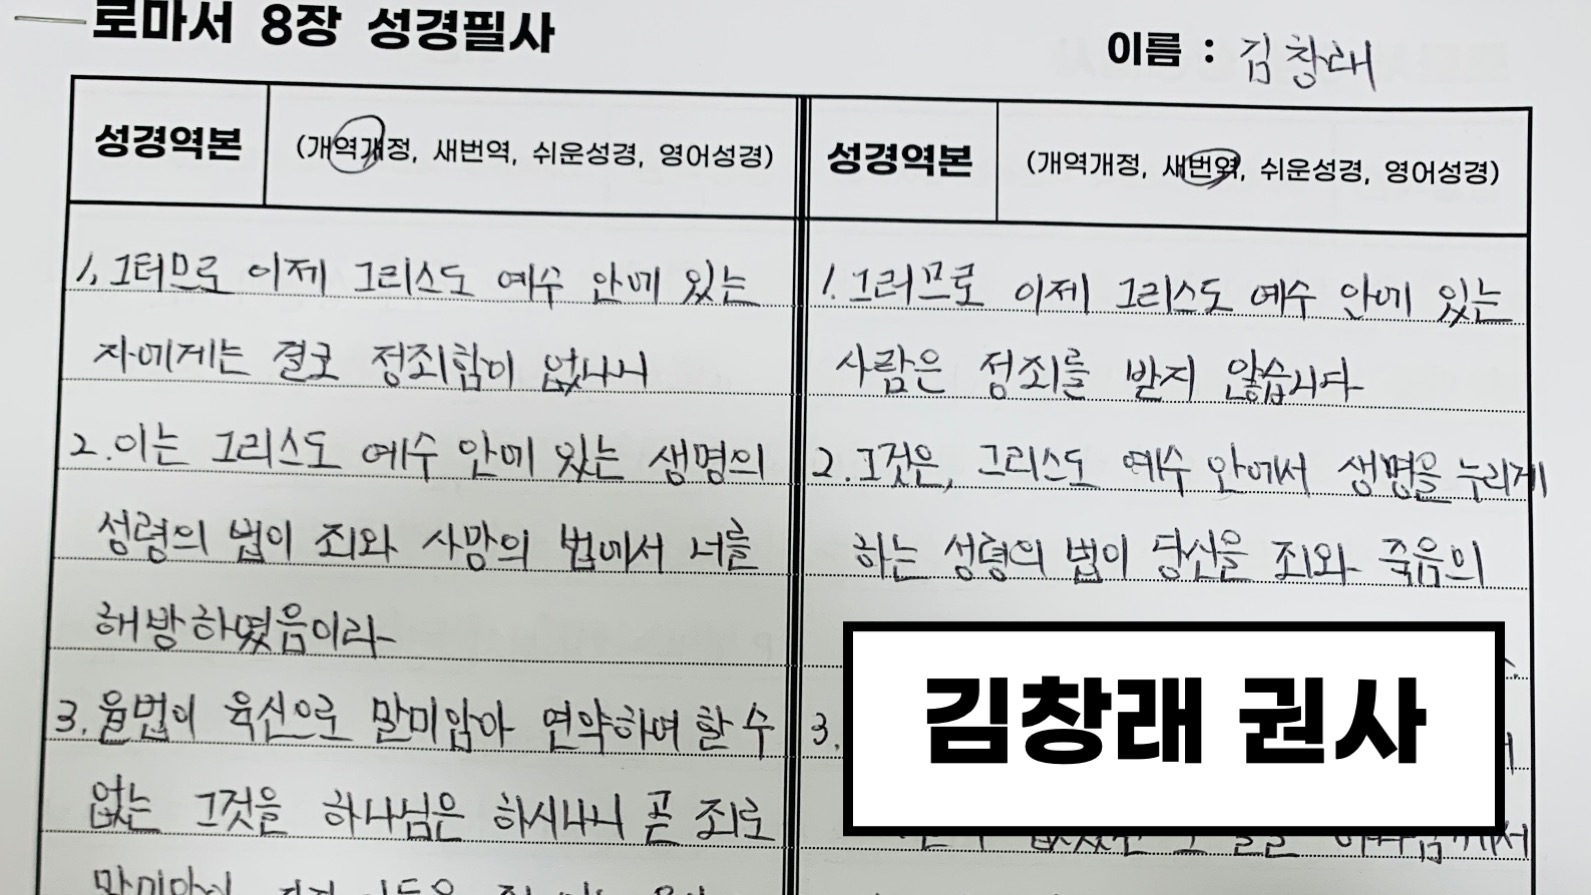 로마서 8장 성경필사
이름 : 김창래
성경역본 (개역개정, 새번역, 쉬운성경, 영어성경)
1. 그러므로 이제 그리스도 예수 안에 있는
자에게는 결코 정죄함이 없나니
2. 이는 그리스도 예수 안에 있는 생명의
성령의 법이 죄와 사망의 법에서 너를
해방하였음이라
3. 율법이 육신으로 말미암아 연약하여 할 수
없는 그것을 하나님은 하시나니 곧 죄로
성경역본 (개역개정, 새번역, 쉬운성경, 영어성경)
1. 그러므로 이제 그리스도 예수 안에 있는
사람은 정죄를 받지 않습니다
2. 그것은, 그리스도 예수 안에서 생명을 누리게
하는 성령의 법이 당신을 죄와 죽음의
3.
김창래 권사